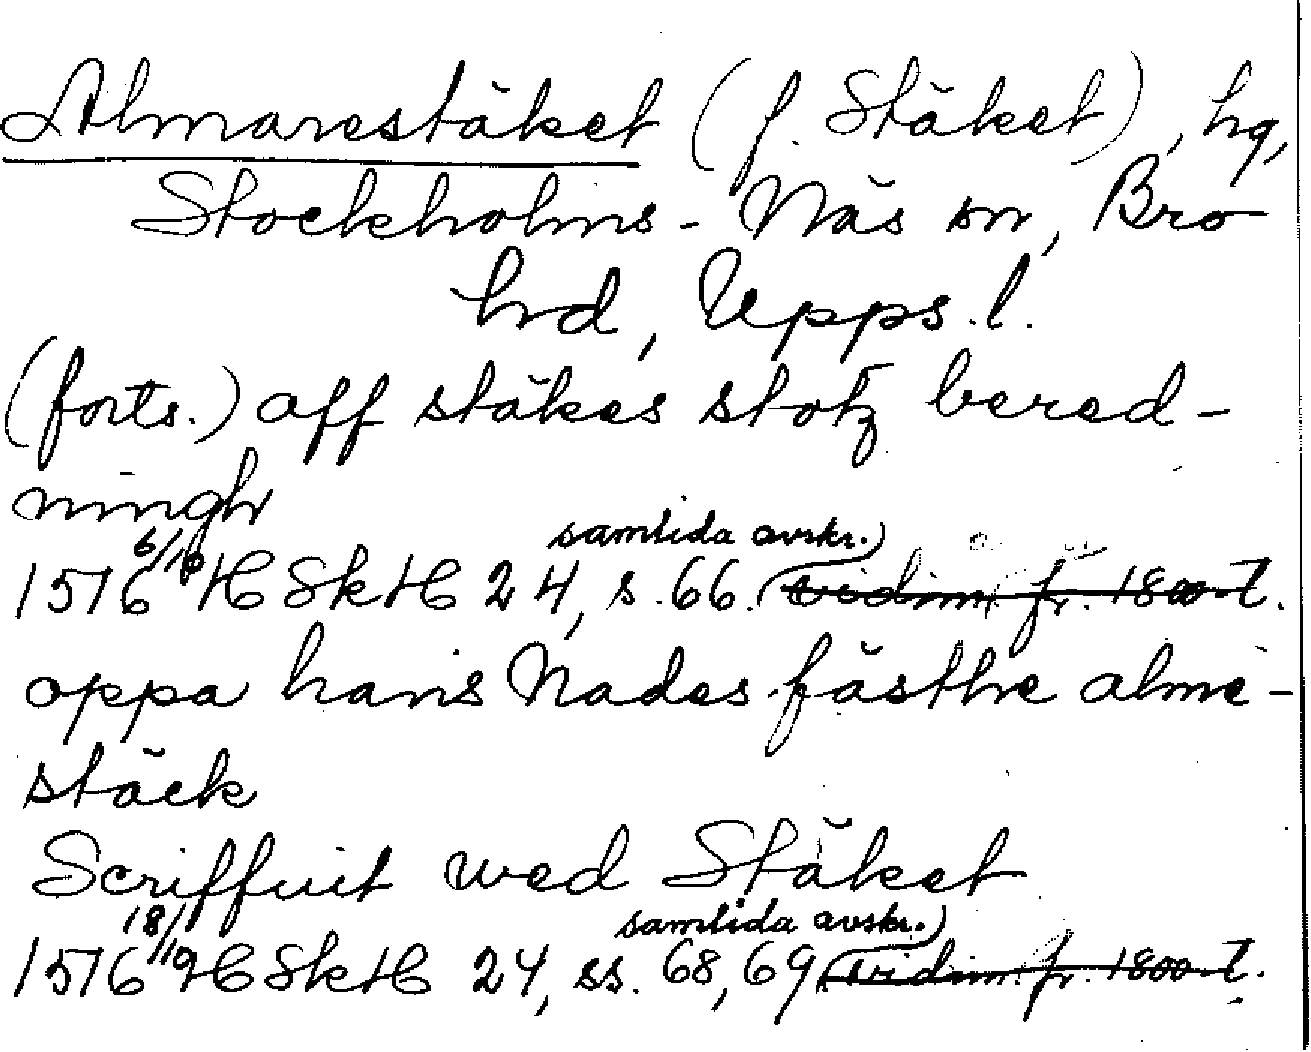 Almarestäket (f. Stäket), hg,
Stockholms-Näs sn, Bro
hd, Upps. l.
(forts.) aff stäkes stotz bered-
ningh
samtida avskr.)
1576 6/10 HSkH 24, s. 66. (vidim. fr. 1800-t.
oppa hans Nades fästhe alme-
stäck
Scriffuit wed Stäket
samtida avskr.)
1576 18/10 HSkH 24, ss. 68, 69 (vidim. fr. 1800-t.